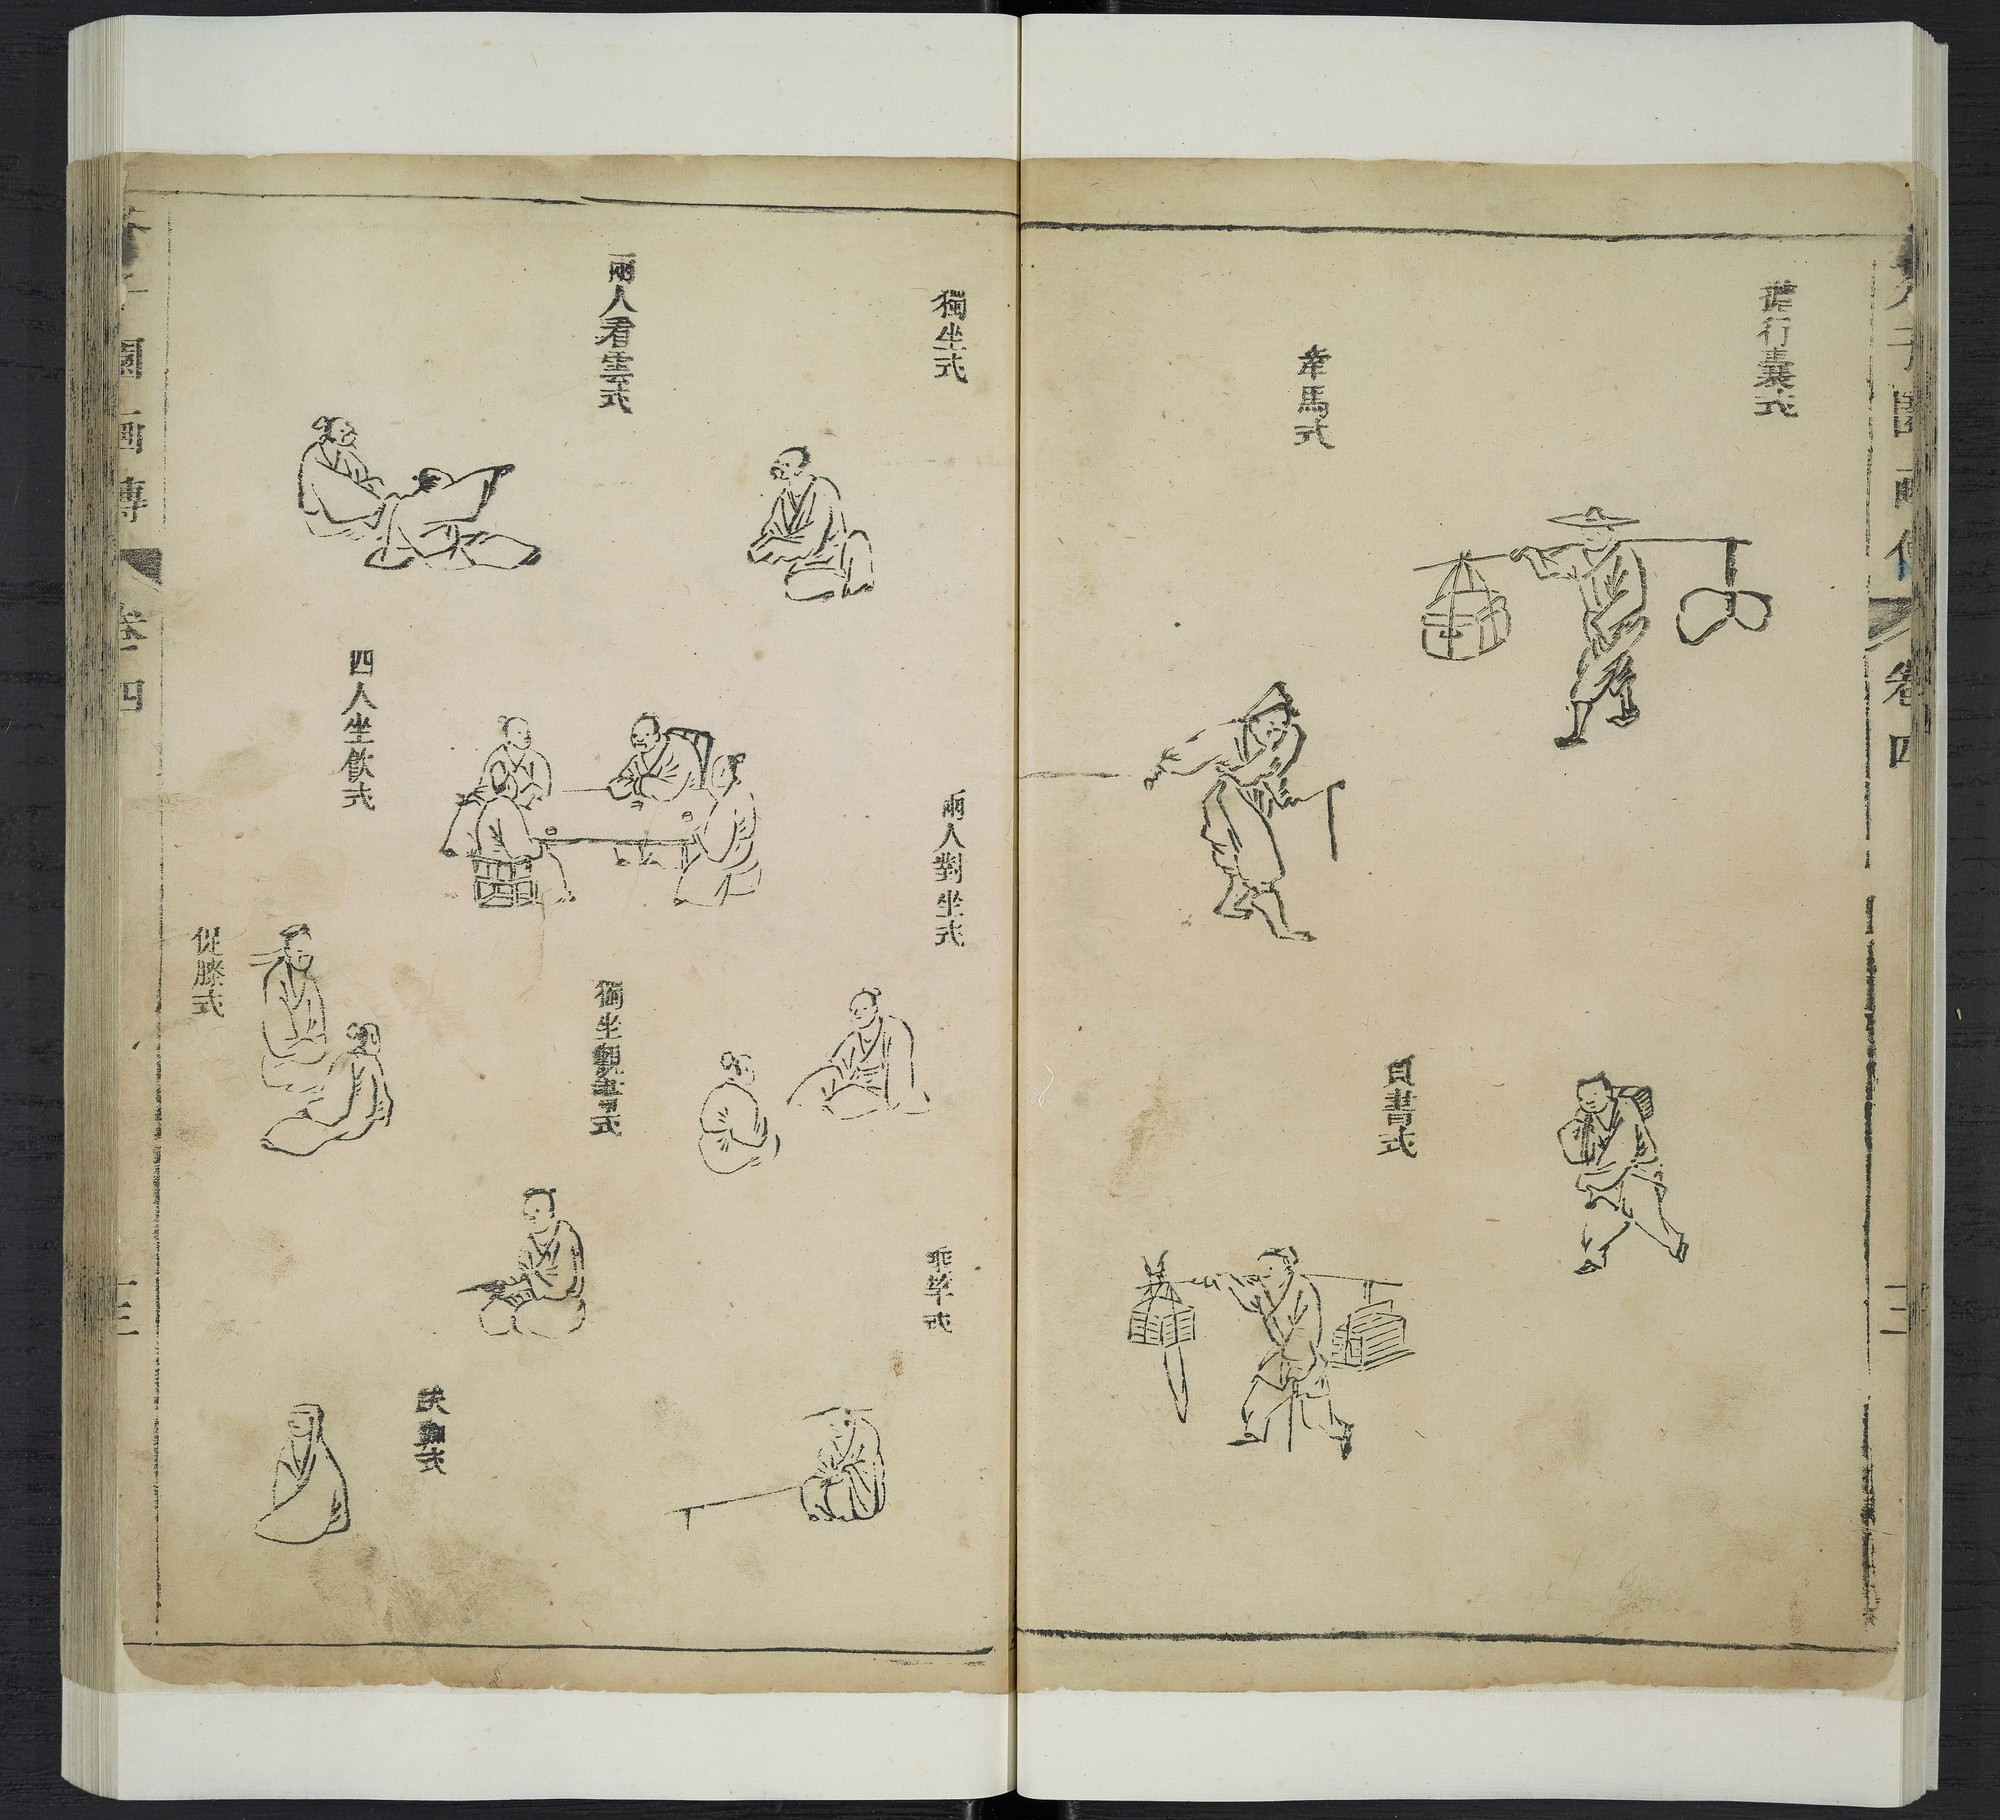 擔行囊式
牽馬式
負書式
獨坐式
兩人看雲式
兩人對坐式
四人坐飲式
獨坐觀書式
促膝式
垂竿式
式
子園畫傳
卷四
園畫傳
卷四
十三